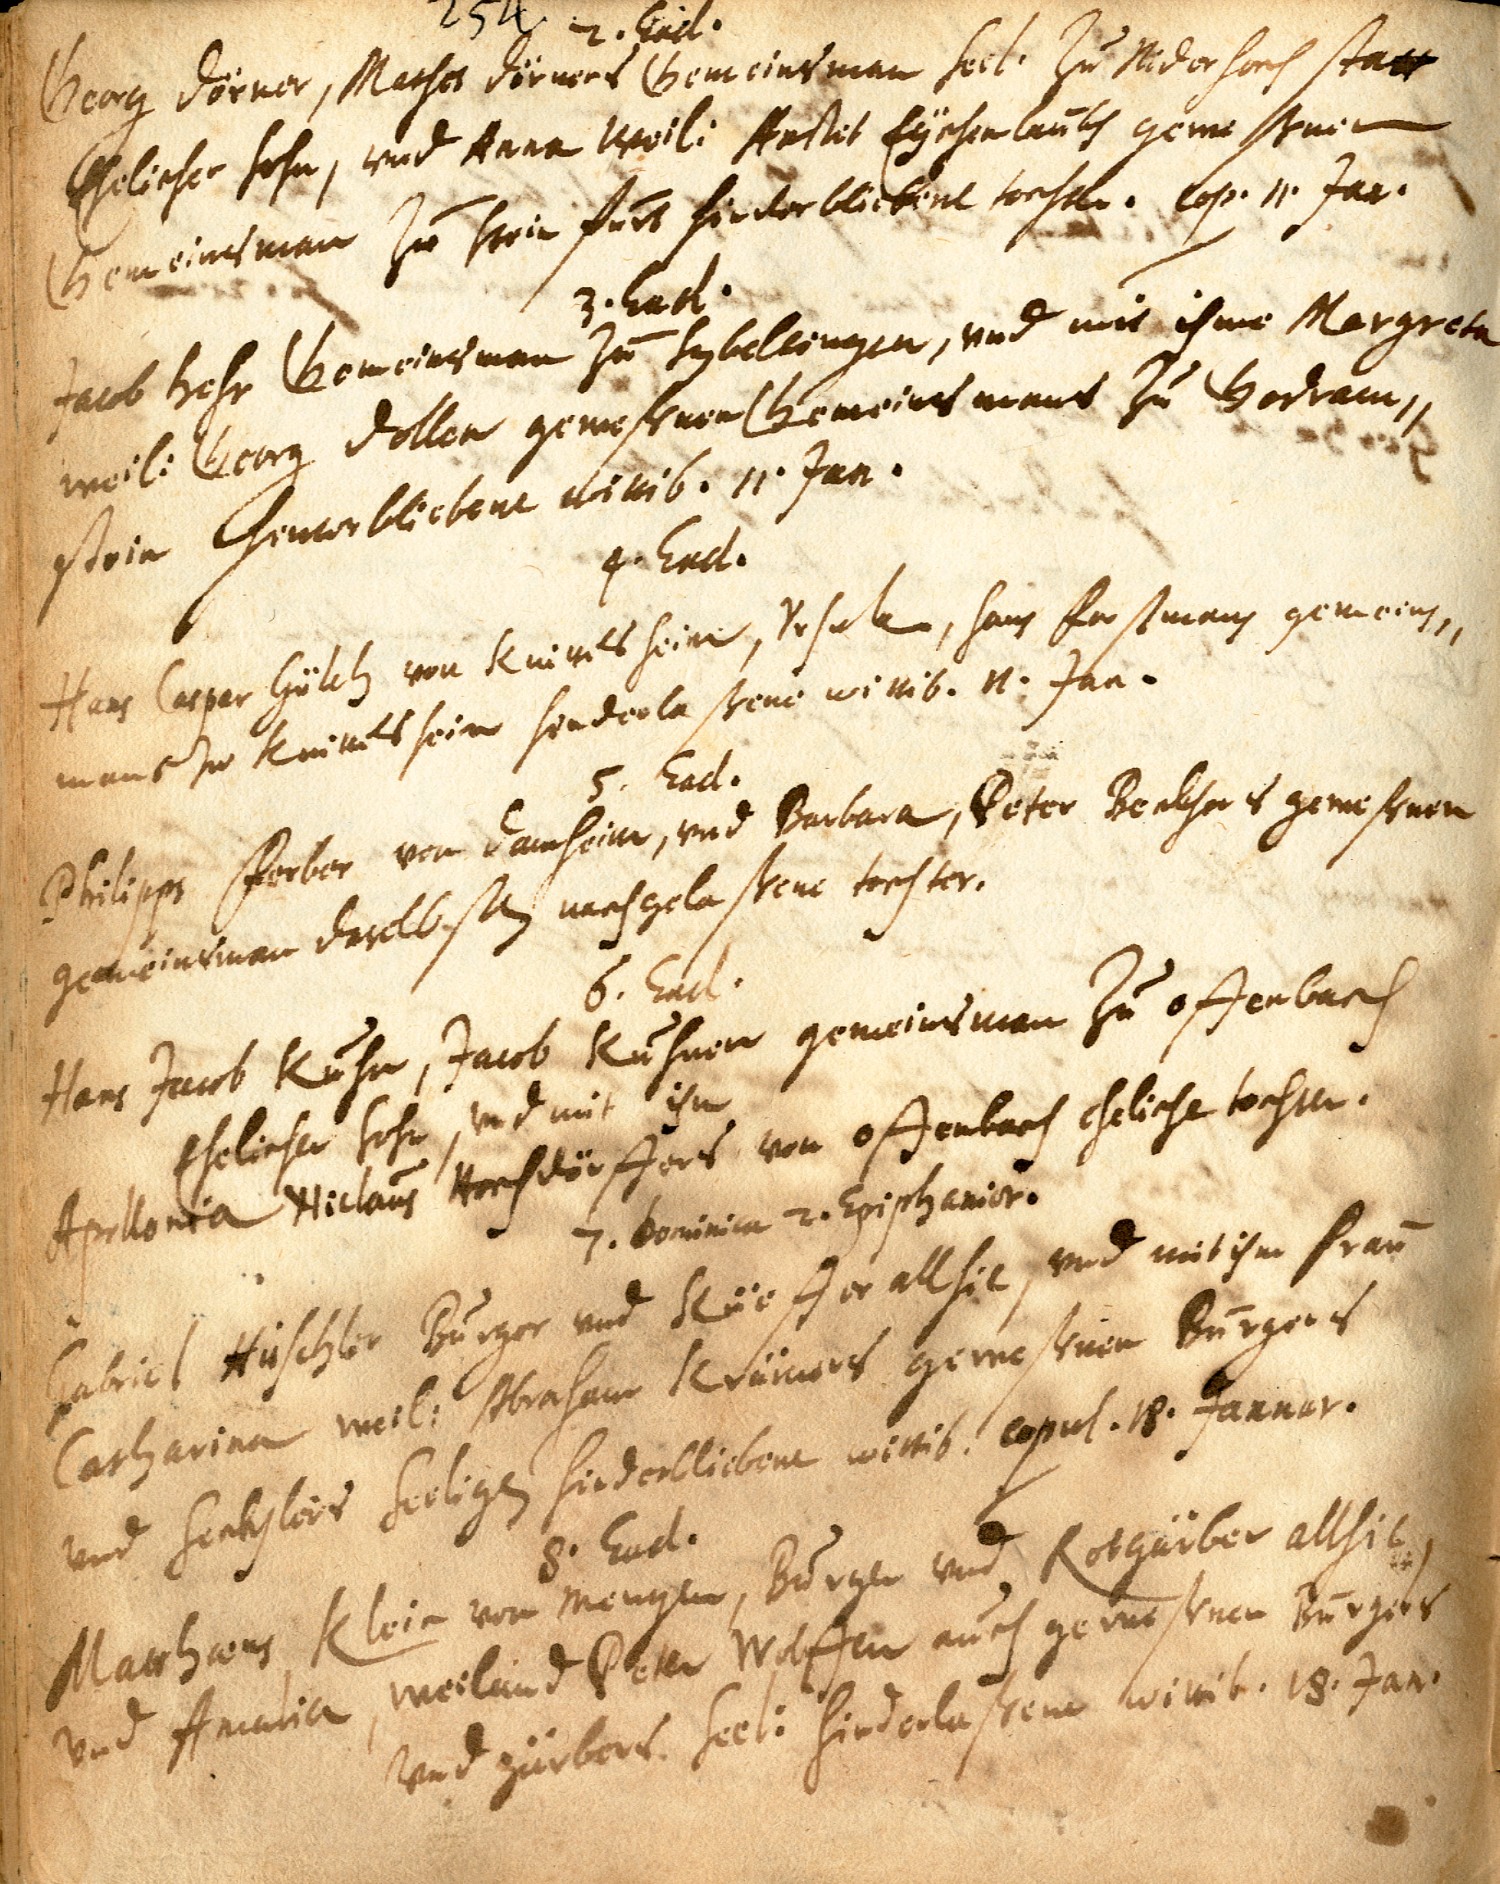 254
2. Ead.
Georg Dörner, Mathes Dörners Gemeinsman seel. zu Niderhoch statt
Ehelicher sohn, vnd Anna weil: Eychenlaubs geweßnen
Gemeinsman zu hinderbliebene tochter. cop. 11. Jan.
3. Ead.
Jacob Gemeinsman zu vnd mit ihme Margreta
weil: Georg Dollen geweßnen Gemeinsmans zu Godram,,
stein hinterbliebene wittib. 11. Jan.
4. Ead.
Hans Caspar von Knittelsheim, Ursula, hans gemeins,,
mans zu Knittelsheim hinderlaßene wittib. 11. Jan.
5. Ead.
Philipps Ferber von Damheim, vnd Barbara, Peter geweßnen
gemeinsman daselbsten nachgelaßene tochter.
6. Ead.
Hans Jacob Kuhn, Jacob Kuhnen gemeinsman zu offenbach
Ehelicher sohn, vnd mit ihm
Apollonia Niclaus Hochdörffers von offenbach eheliche tochter.
7. Dominica 2. Epiphanior.
Gabriel Burger vnd Küeffer allhie, vnd mit ihm frau
Catharina weil: Abraham Krämers geweßnen Burgers
vnd seeligen hinderbliebene wittib. copul. 18. Januar.
8. Ead.
Matthæus Klein von Mengen, Burger vnd Rotgärber allhie,
vnd Amalia, weiland Peter Wolffen auch geweßnen Burgers
vnd gärbers seel: hinderlaßene wittib. 18. Jan.